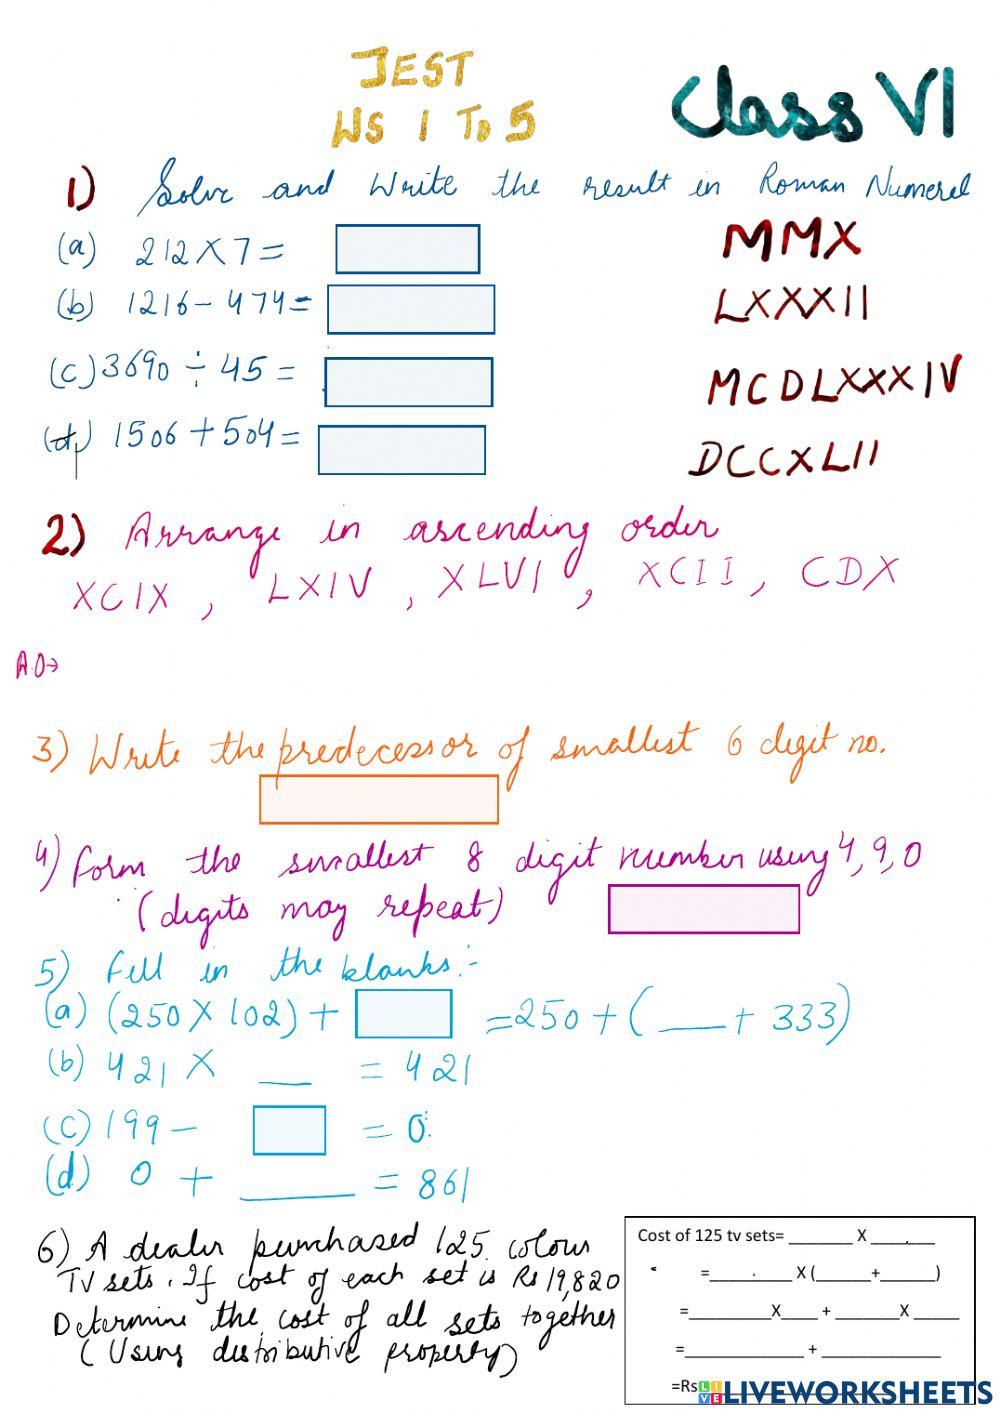 TEST
WS 1 To 5
Class VI
1) Solve and Write the result in Roman Numeral
(a) 212 X 7 =
MMX
(b) 1216 - 474 =
LXXXII
(c) 3690 ÷ 45 =
MCDLXXXIV
(d) 1506 + 504 =
DCCXLII
2) Arrange in ascending order
XCIX , LXIV , XLVI , XCII , CDX
A.O→
3) Write the predecessor of smallest 6 digit no.
4) Form the smallest 8 digit number using 4, 9, 0
(digits may repeat)
5) Fill in the blanks :-
(a) (250 X 102) + = 250 + ( __ + 333)
(b) 421 X __ = 421
(c) 199 - = 0
(d) 0 + ____ = 861
6) A dealer purchased 125 colour
TV sets. If cost of each set is Rs 19,820
Determine the cost of all sets together
(Using distributive property)
Cost of 125 tv sets= _______ X _______
=_________ X (______+______)
=_________X____ + _______X _____
=_____________ + _____________
=Rs
LIVEWORKSHEETS